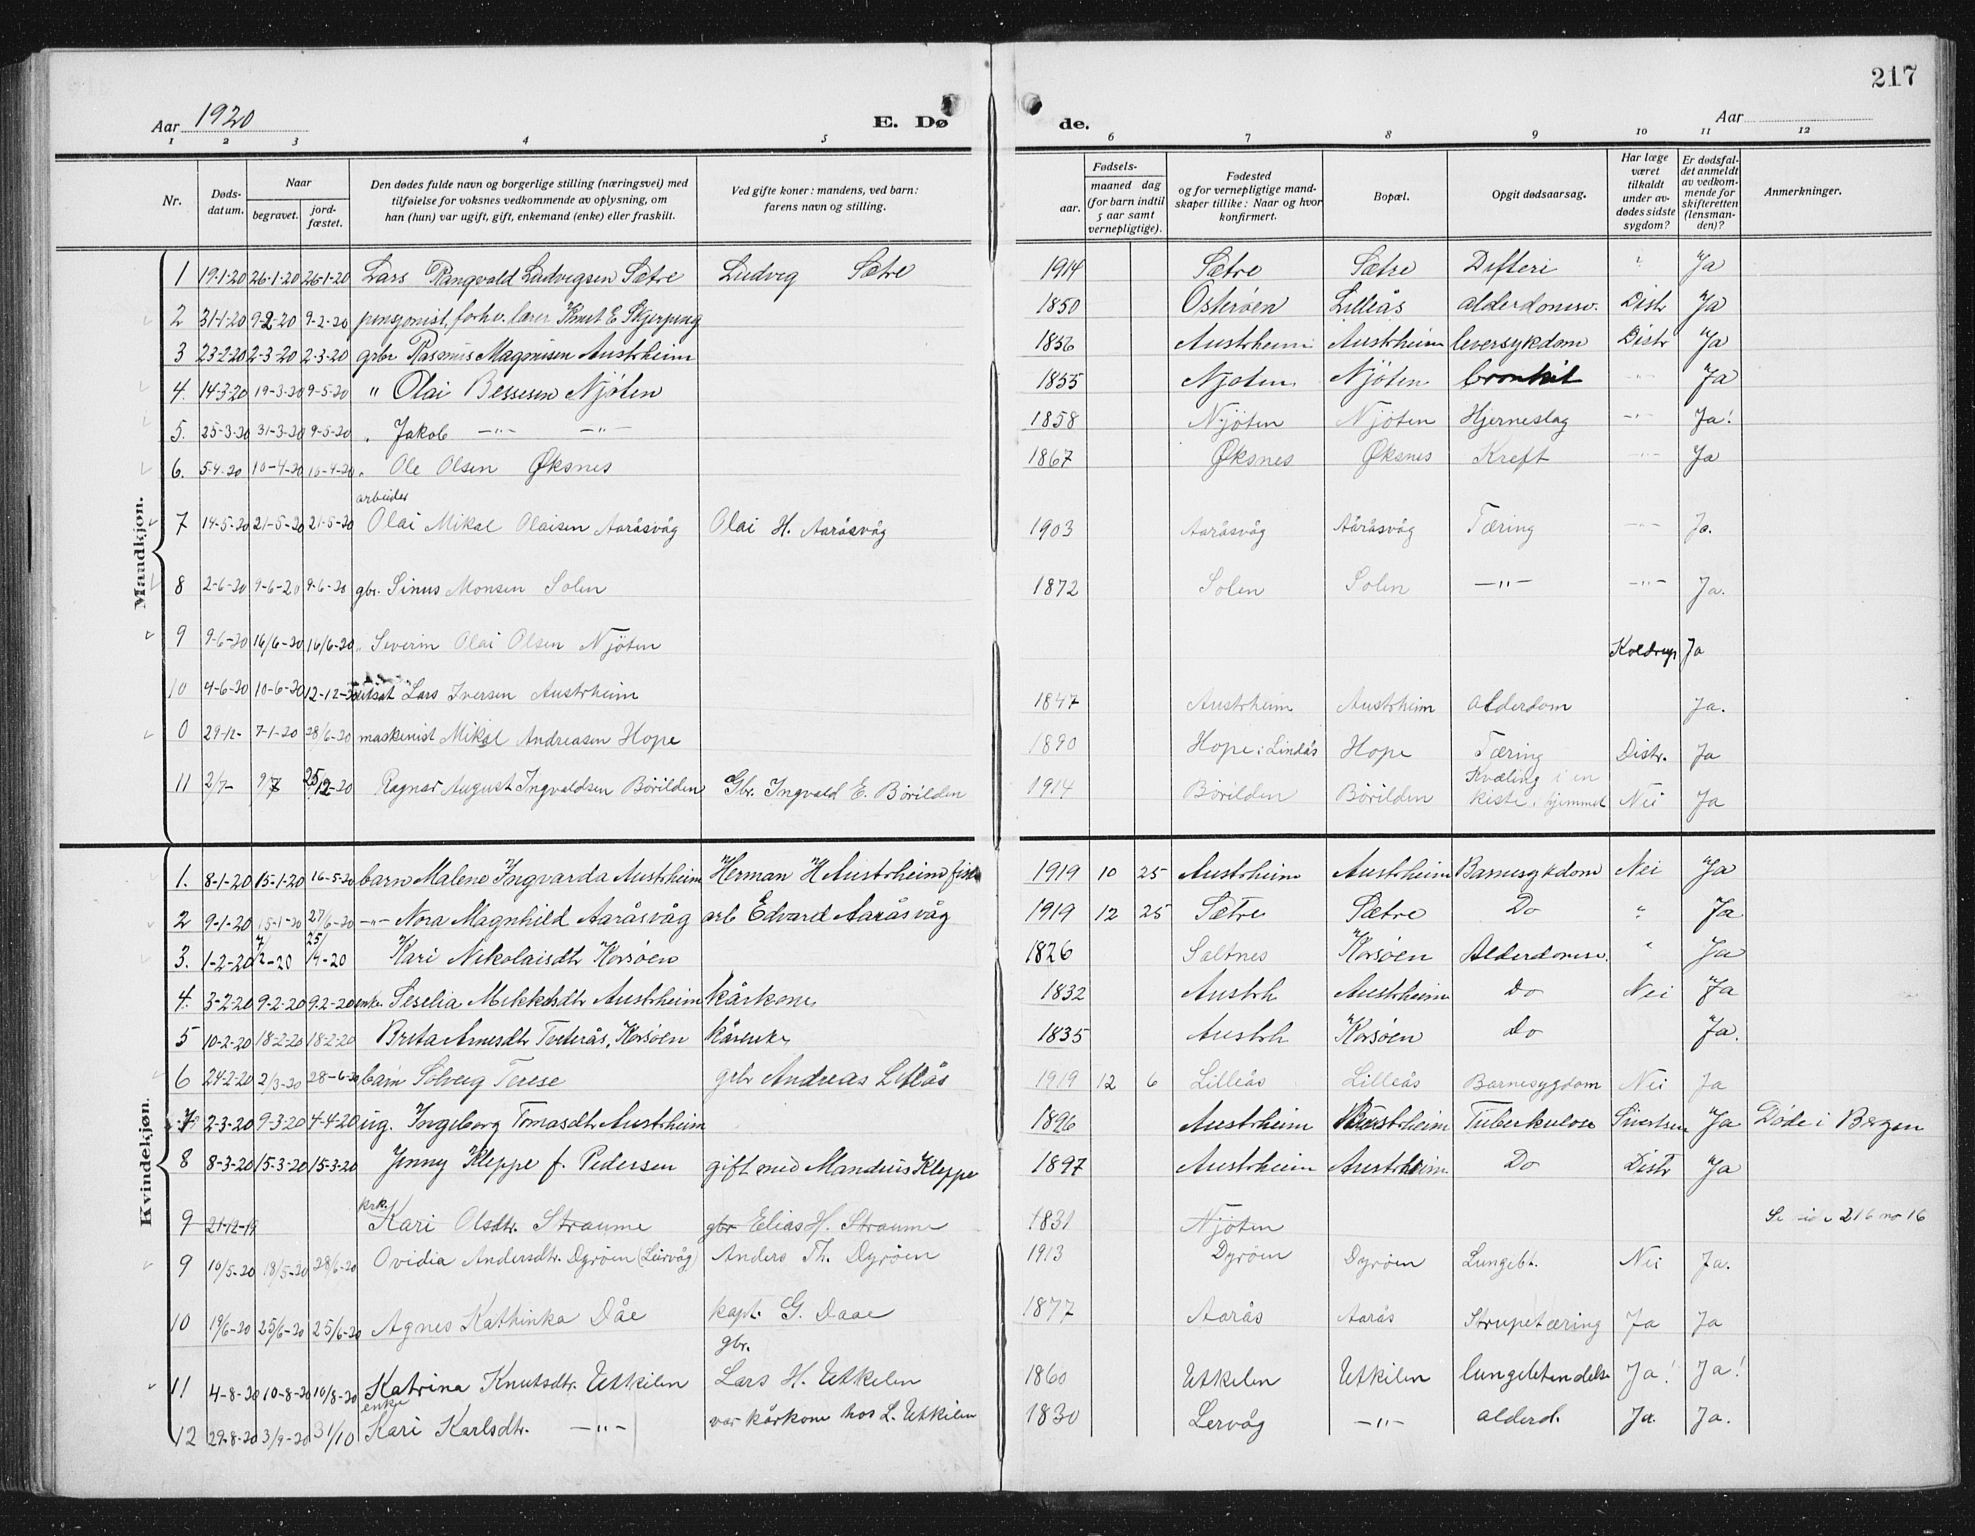 217
Aar 1920 E. Dø de. Aar
1 2 3 4 5 6 7 8 9 10 11 12
Nr. Døds-datum. Naar begravet. jord-fæstet. Den dødes fulde navn og borgerlige stilling (næringsvei) med tilføielse for voksnes vedkommende av oplysning, om han (hun) var ugift, gift, enkemand (enke) eller fraskilt. Ved gifte koner: mandens, ved barn: farens navn og stilling. Fødsels- aar. maaned dag (for barn indtil 5 aar samt vernepligtige). Fødested og for vernepligtige mand-skaper tillike: Naar og hvor konfirmert. Bopæl. Opgit dødsaarsag. Har læge været tilkaldt under av-dødes sidste sygdom? Er dødsfal-det anmeldt av vedkom-mende for skifteretten (lensman-den)? Anmerkninger.
Mandkjøn.
1 19-1-20 26-1-20 26-1-20 Lars Rangvald Ludvigsen Sætre Ludvig Sætre 1914 Sætre Sætre Difteri " Ja
2 31-1-20 9-2-20 9-2-20 pensjonist, forhv. lærer Knut E Skjerping 1850 Osterøen Lilleås alderdomsv. Distr Ja
3 23-2-20 2-3-20 2-3-20 grbr Rasmus Magnusen Austrheim 1856 Austrheim Austrheim leversykdom Distr Ja
4. 14-3-20 19-3-20 9-5-20 " Olai Bessesen Njöten 1855 Njöten Njöten bronkit -"- Ja
5. 25-3-20 31-3-20 9-5-20 " Jakob -"- -"- 1858 Njöten Njöten Hjerneslag -"- Ja!
6. 5-4-20 10-4-20 10-4-20 " Ole Olsen Øksnes 1867 Øksnes Øksnes Kreft -"- Ja
arbeider
7 14-5-20 21-5-20 21-5-20 Olai Mikal Olaisen Aaråsvåg Olai H. Aaråsvåg 1903 Aaråsvåg Aaråsvåg Tæring -"- Ja.
8 2-6-20 9-6-20 9-6-20 gbr. Sinus Monsen Solen 1872 Solen Solen -"- -"- Ja.
9 9-6-20 16/6-20 16/6-20 " Severin Olai Olsen Njöten Koldrup Ja
10 4-6-20 10-6-20 12-12-20 Lars Iversen Austrheim 1847 Austrheim Austrheim alderdom Ja.
0 29-12- 7-1-20 28/6-20 maskinist Mikal Andreasen Hope 1890 Hope i Lindås Hope Tæring Distr. Ja
11 2/7- 9/7 25/12-20 Ragnar August Ingvaldsen Börilden Gbr. Ingvald E. Börilden 1914 Börilden Börilden Kvæling i en kiste i hjemmet Nei Ja
Kvindekjøn.
1. 8-1-20 15-1-20 16-5-20 barn Malene Ingvarda Austrheim Herman H Austrheim 1919 10 25 Austrheim Austrheim Barnesykdom Nei Ja
2 9-1-20 15-1-20 27/6-20 -"- Nora Magnhild Aaråsvåg arb Edvard Aaråsvåg 1919 12 25 Sætre Sætre Do " Ja
3. 1-2-20 7/2-20 25/4-20 Kari Nikolaisdtr Korsöen 1826 Saltnes Korsöen Alderdomsv. " Ja
4. 3-2-20 9-2-20 9-2-20 enke. Seselia Mikkelsdtr Austrheim kårkone 1832 Austrh Austrheim Do Nei Ja
5 10-2-20 18-2-20 18-2-20 Brita Arnesdtr Tveterås, Korsöen kårenke 1835 Austrh Korsöen Do Ja.
6 24-2-20 2/3-20 28-6-20 barn Solveig Terese grbr Andreas Lilleås 1919 12 6 Lilleås Lilleås Barnesygdom Nei Ja
7 2-3-20 9-3-20 4-4-20 ug. Ingeborg Tomasdtr Austrheim 1896 Austrheim Austrheim Tuberkulose Sivertsen Ja Døde i Bergen
8 8-3-20 15-3-20 15-3-20 Jenny Kleppe f. Pedersen gift med Mandius Kleppe 1897 Austrheim Austrheim Do Distr Ja
krk.
9 21-12-19 Kari Olsdtr. Straume gbr Elias H. Straume 1831 Njöten Se side 216 no 16
9 10/5-20 18/5-20 28/6-20 Ovidia Andersdtr. Dyröen (Leirvåg) Anders Th. Dyröen 1913 Dyröen Dyröen Lungebt. Nei Ja.
10 19/6-20 25/6-20 25/6-20 Agnes Kathinka Dåe kapt. G. Daae 1877 Aarås Aarås Strupetæring Ja Ja
gbr.
11 4-8-20 10-8-20 10/8-20 Katrina Knutsdtr. Utkilen Lars H. Utkilen 1860 Utkilen Utkilen lungebetendelse Ja! Ja!
enke
12 29-8-20 3/9-20 31/10 Kari Karlsdtr. -"- var kårkone hos L. Utkilen 1830 Lervåg -"- alderd. Ja. Ja.